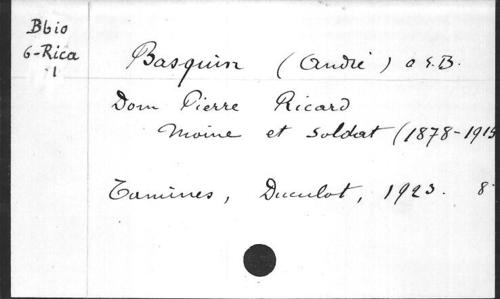 Bbio
6-Rica
1
Basquin (André) O.S.B.
Dom Pierre Ricard
Moine et soldat (1878-1915
Tamines, Duculot, 1923. 8°